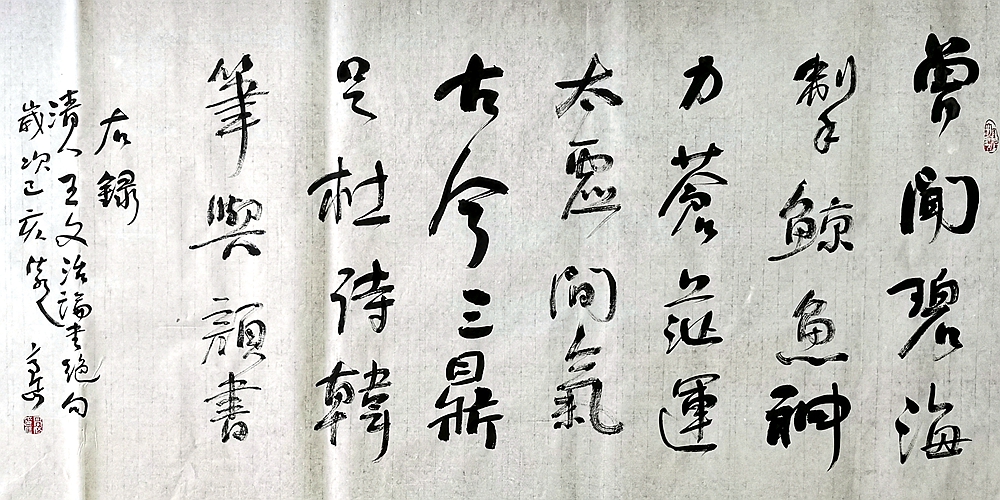 曾聞碧海
掣鯨魚神
力蒼茫運
太虛間氣
古今三鼎
足杜詩韓
筆與顏書
右錄
清人王文治論書絕句
歲次己亥